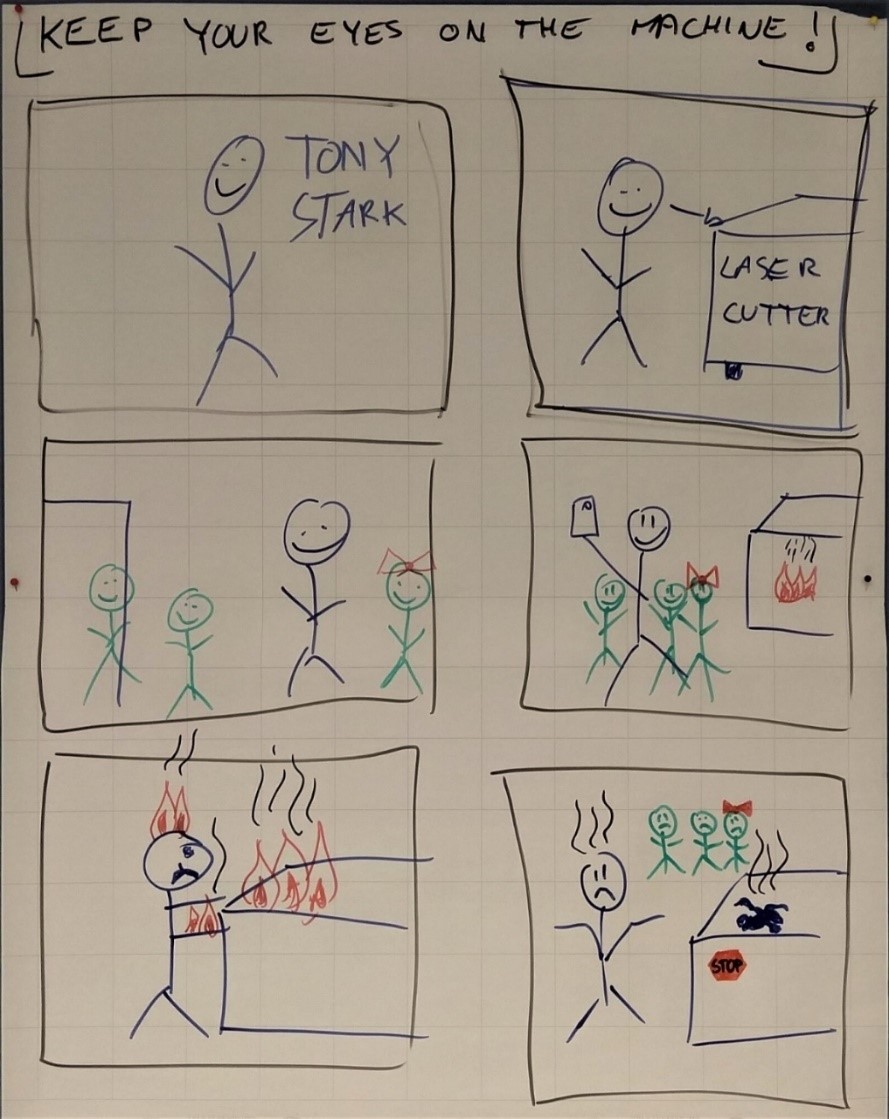 KEEP YOUR EYES ON THE MACHINE!
TONY
STARK
LASER
CUTTER
STOP